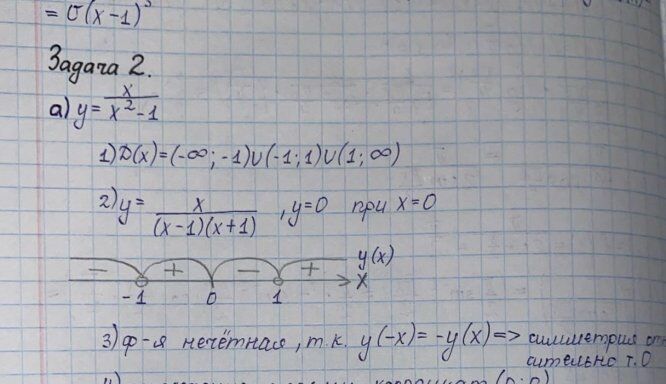 = σ(x-1)³
Задача 2.
а) y = x/(x²-1)
1) D(x)=(-∞; -1)∪(-1; 1)∪(1; ∞)
2) y = x/((x-1)(x+1)), y=0 при x=0
y(x)
- + - + x
-1 0 1
3) ф-я нечётная, т.к. y(-x) = -y(x) => симметрия отн
сительно т.О
координат (0; 0)